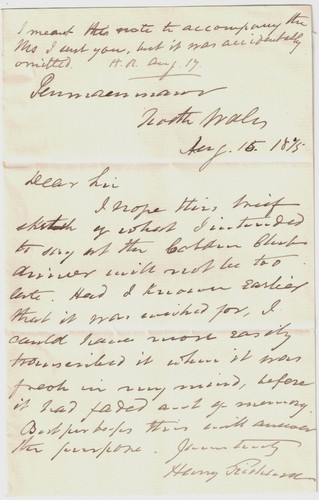 I meant this note to accompany the
Ms I sent you, but it was accidentally
omitted. H.R. Aug 17.
Penmaenmawr
North Wales
Aug. 15. 1875
Dear Sir
I hope this brief
sketch of what I intended
to say at the Cobden Club
dinner will not be too
late. Had I known earlier
that it was wished for, I
could have more easily
transcribed it when it was
fresh in my mind, before
it had faded out of memory.
But perhaps this will answer
the purpose. Yours truly
Henry Richard